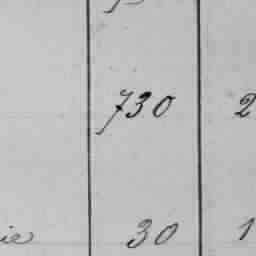 730 2
ie 30 1